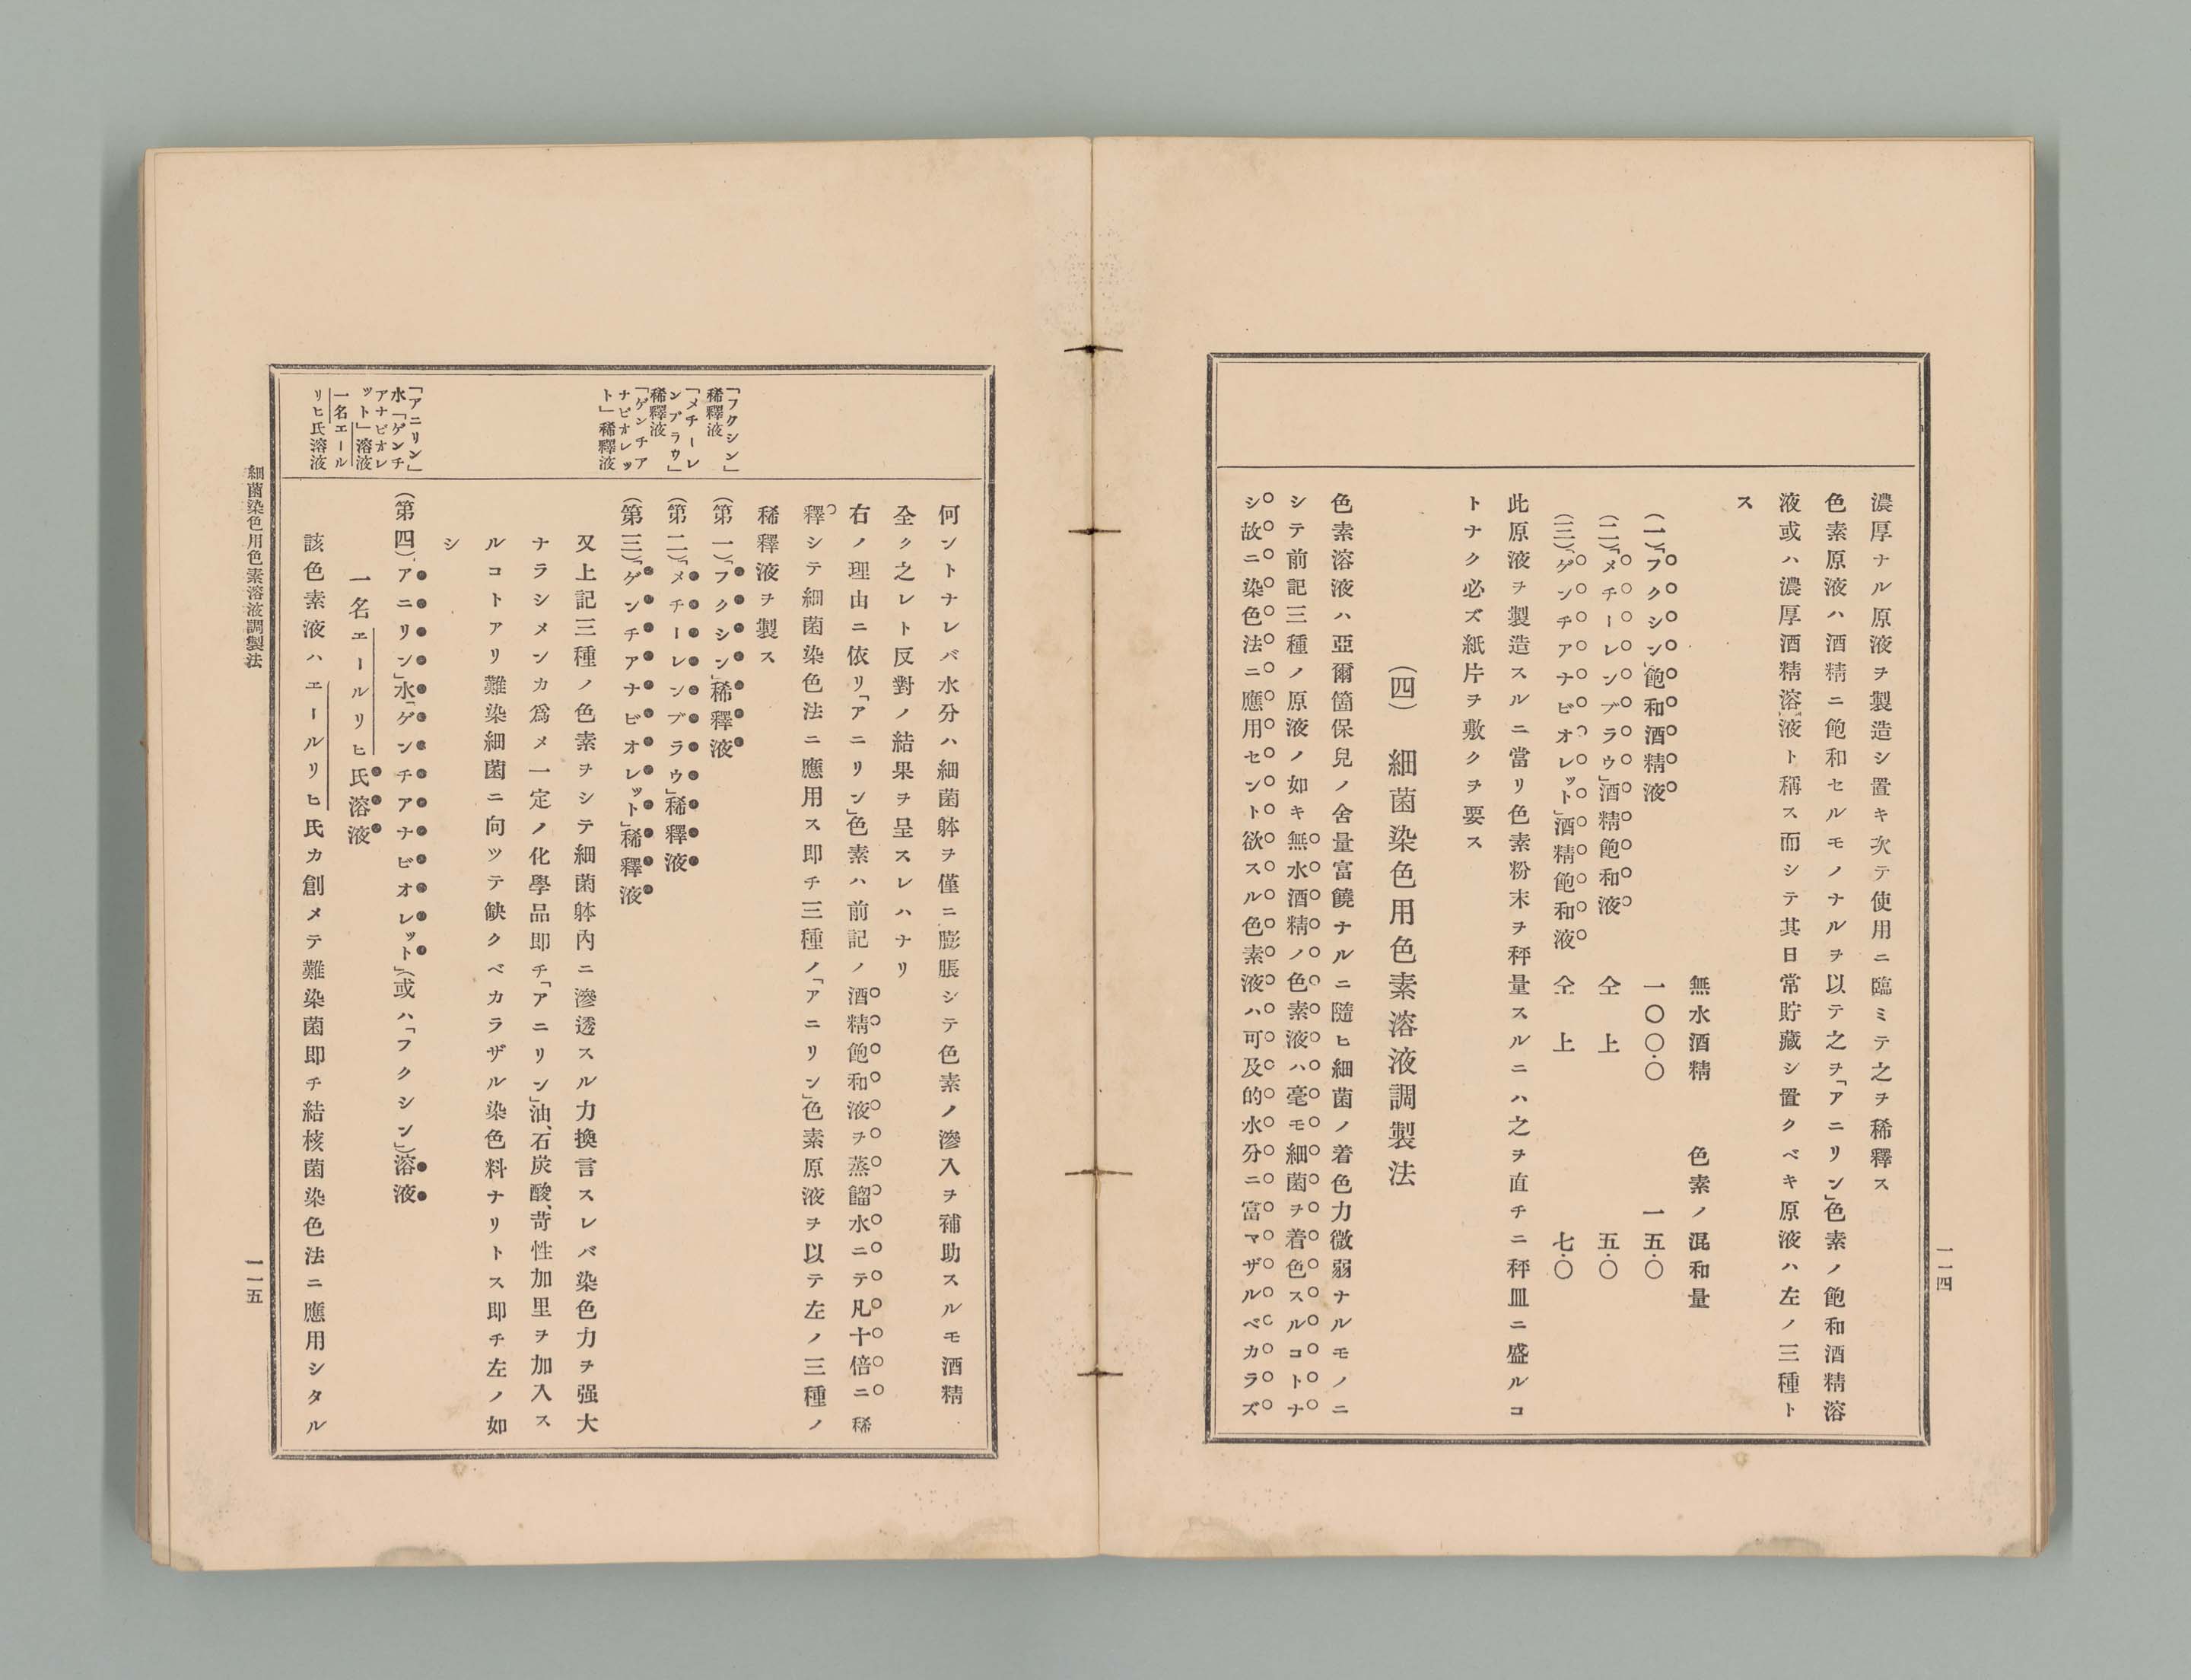 濃厚ナル原液ヲ製造シ置キ次テ使用ニ臨ミテ之ヲ稀釋ス
色素原液ハ酒精ニ飽和セルモノナルヲ以テ之ヲ「アニリン」色素ノ飽和酒精溶
液或ハ濃厚酒精溶液ト稱ス而シテ其日常貯藏シ置クベキ原液ハ左ノ三種ト
ス
無水酒精 色素ノ混和量
(一)「フクシン」飽和酒精液 一〇〇.〇 一五.〇
(二)「メチーレンブラウ」酒精飽和液 仝上 五.〇
(三)「ゲンチアナビオレット」酒精飽和液 仝上 七.〇
此原液ヲ製造スルニ當リ色素粉末ヲ秤量スルニハ之ヲ直チニ秤皿ニ盛ルコ
トナク必ズ紙片ヲ敷クヲ要ス
(四) 細菌染色用色素溶液調製法
色素溶液ハ亞爾箇保兒ノ含量富饒ナルニ隨ヒ細菌ノ着色力微弱ナルモノニ
シテ前記三種ノ原液ノ如キ無水酒精ノ色素液ハ毫モ細菌ヲ着色スルコトナ
シ故ニ染色法ニ應用セント欲スル色素液ハ可及的水分ニ富マザルベカラズ
一一四
何ントナレバ水分ハ細菌躰ヲ僅ニ膨脹シテ色素ノ滲入ヲ補助スルモ酒精
全ク之レト反對ノ結果ヲ呈スレハナリ
右ノ理由ニ依リ「アニリン」色素ハ前記ノ酒精飽和液ヲ蒸餾水ニテ凡十倍ニ稀
釋シテ細菌染色法ニ應用ス即チ三種ノ「アニリン」色素原液ヲ以テ左ノ三種ノ
稀釋液ヲ製ス
(第一)「フクシン」稀釋液
(第二)「メチーレンブラウ」稀釋液
(第三)「ゲンチアナビオレット」稀釋液
又上記三種ノ色素ヲシテ細菌躰內ニ滲透スル力換言スレバ染色力ヲ强大
ナラシメンカ爲メ一定ノ化學品即チ「アニリン」油、石炭酸、苛性加里ヲ加入ス
ルコトアリ難染細菌ニ向ツテ缺クベカラザル染色料ナリトス即チ左ノ如
シ
(第四)「アニリン」水「ゲンチアナビオレット」(或ハ「フクシン」)溶液
一名エールリヒ氏溶液
該色素液ハエールリヒ氏カ創メテ難染菌即チ結核菌染色法ニ應用シタル
「フクシン」
稀釋液
「メチーレ
ンブラウ」
稀釋液
「ゲンチア
ナビオレッ
ト」稀釋液
「アニリン」
水「ゲンチ
アナビオレ
ット」溶液
一名エール
リヒ氏溶液
細菌染色用色素溶液調製法
一一五